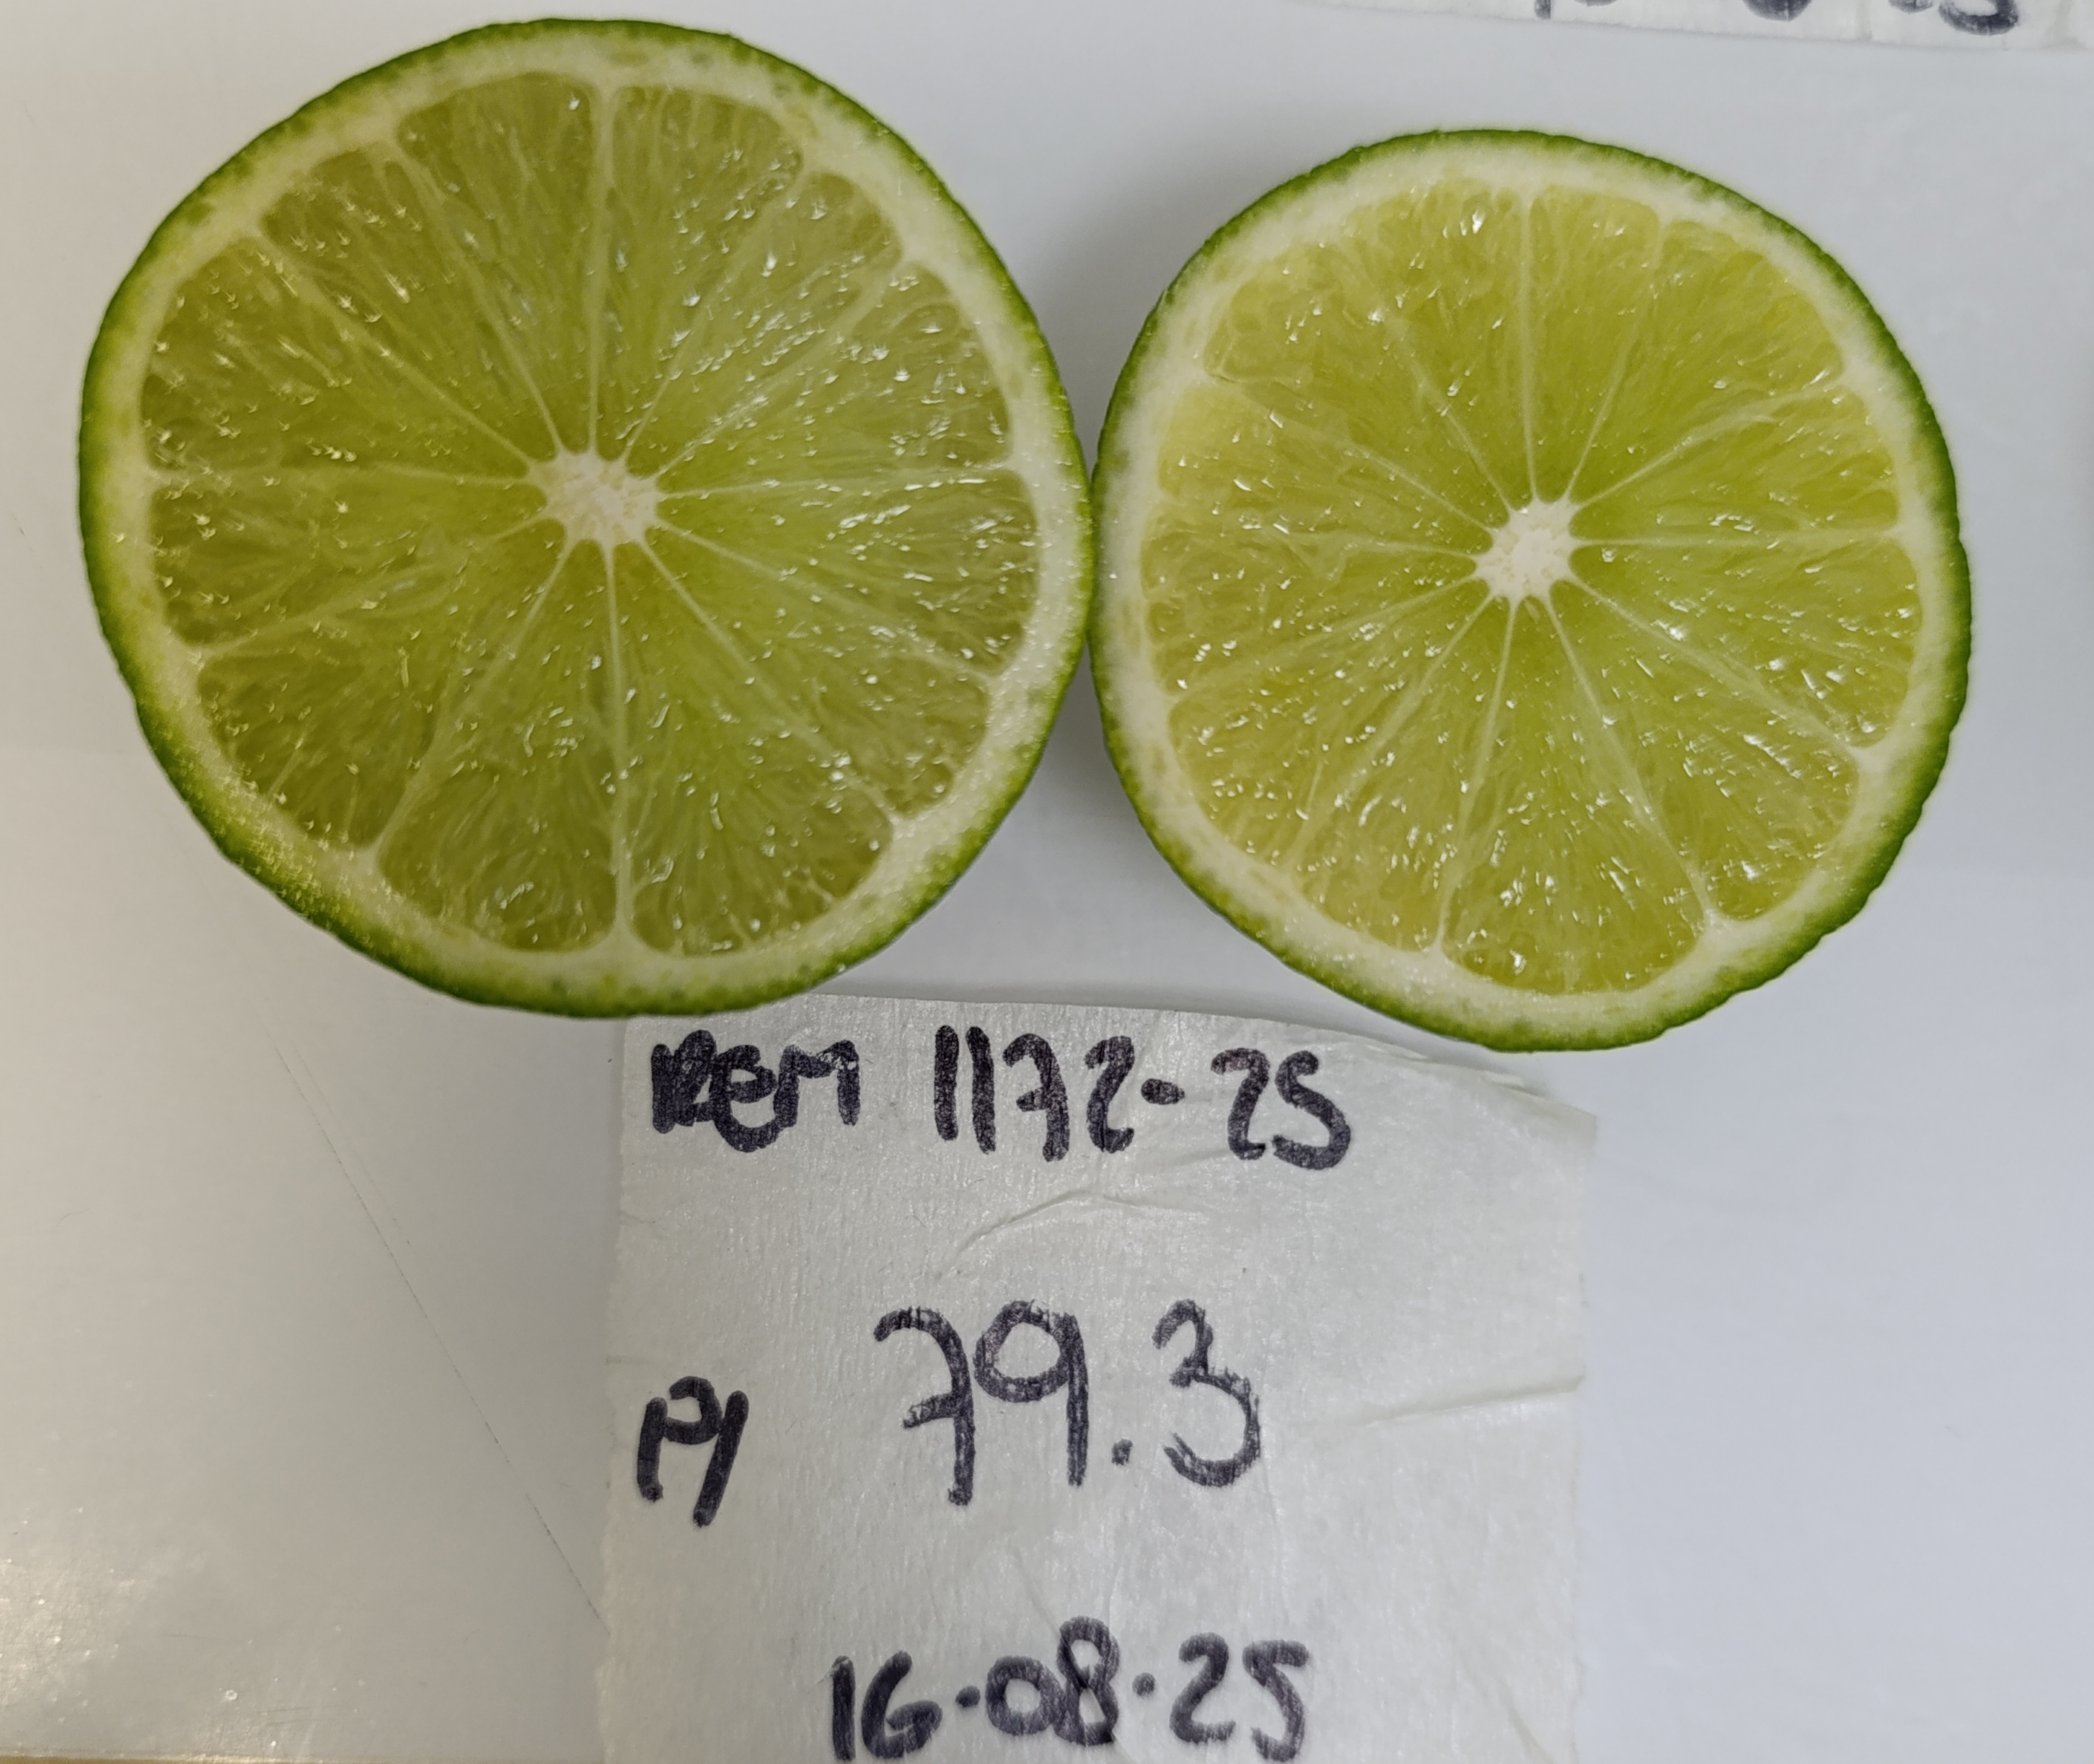 REM 1172-25
79.3
M
16.08.25